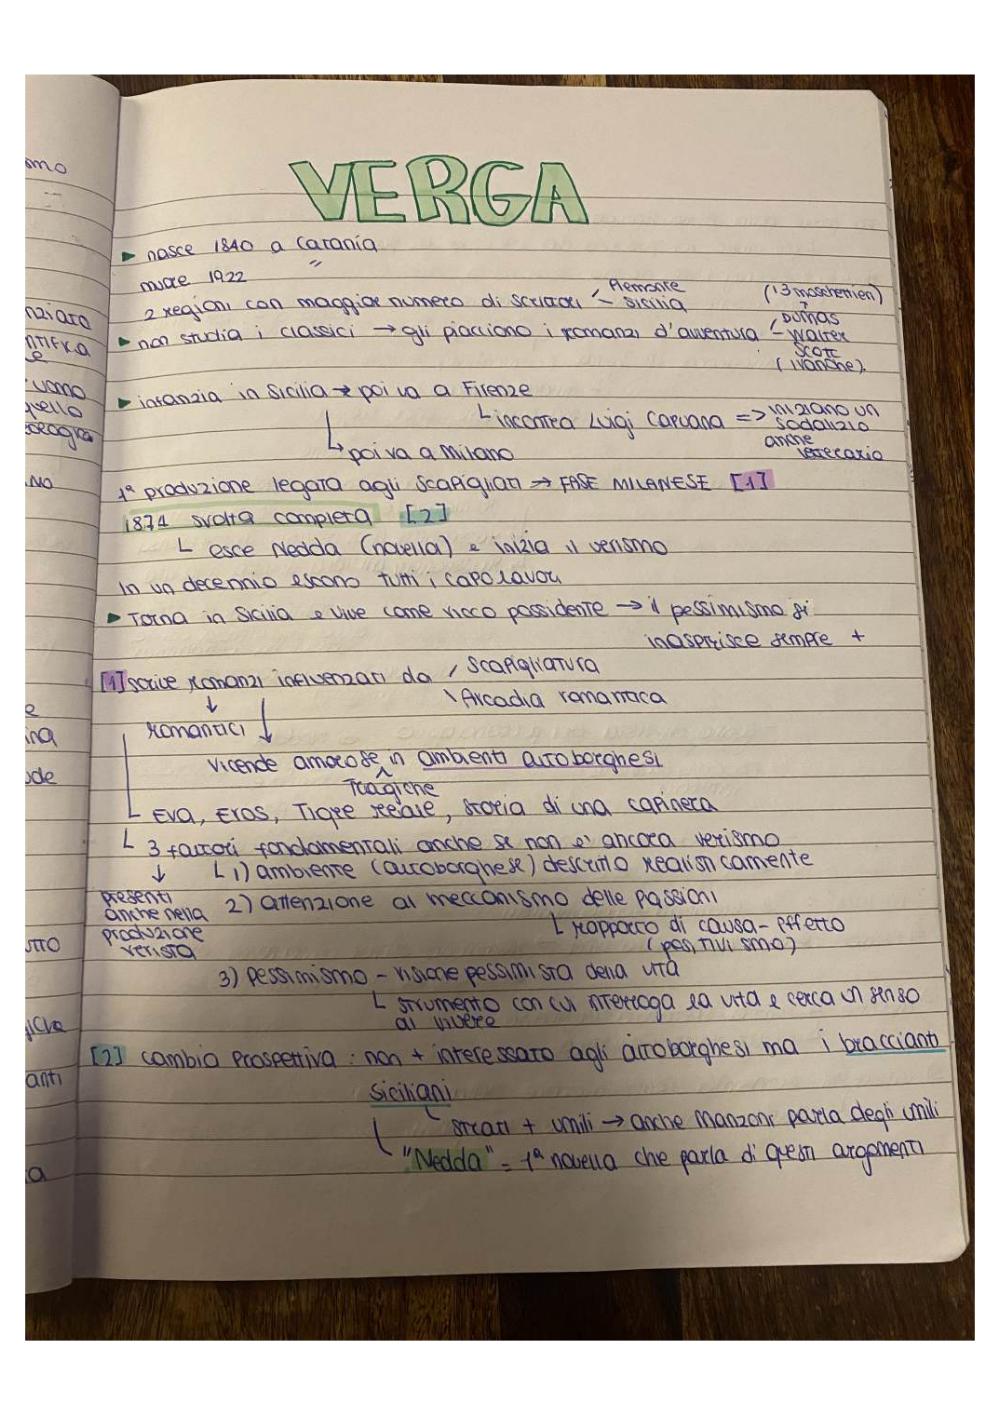 VERGA
▶ nasce 1840 a Catania
muore 1922 "
2 regioni con maggior numero di scrittori - Piemonte
- Sicilia
(i 3 moschettieri)
▶ non studia i classici → gli piacciono i romanzi d'avventura - Dumas
- Walter
Scott
(Ivanohe).
▶ infanzia in Sicilia → poi va a Firenze
incontra Luigi Capuana => iniziano un
sodalizio
anche
letterario
poi va a Milano
1ª produzione legata agli Scapigliati → FASE MILANESE [1]
1874 svolta completa [2]
esce Nedda (novella) e inizia il verismo
In un decennio escono tutti i capolavori
▶ Torna in Sicilia e vive come ricco possidente → il pessimismo si
inasprisce sempre +
[1] scrive romanzi influenzati da / Scapigliatura
\ Arcadia romantica
↓
romantici
vicende amorose in ambienti altoborghesi
tragiche
Eva, Eros, Tigre reale, storia di una capinera
3 fattori fondamentali anche se non e' ancora verismo
↓ 1) ambiente (altoborghese) descritto realisticamente
presenti
anche nella
produzione
verista
2) attenzione al meccanismo delle passioni
rapporto di causa-effetto
(positivismo)
3) pessimismo - visione pessimista della vita
strumento con cui interroga la vita e cerca un senso
al vivere
[2] cambia prospettiva: non + interessato agli altoborghesi ma i braccianti
siciliani
strati + umili → anche Manzoni parla degli umili
"Nedda" = 1ª novella che parla di questi argomenti